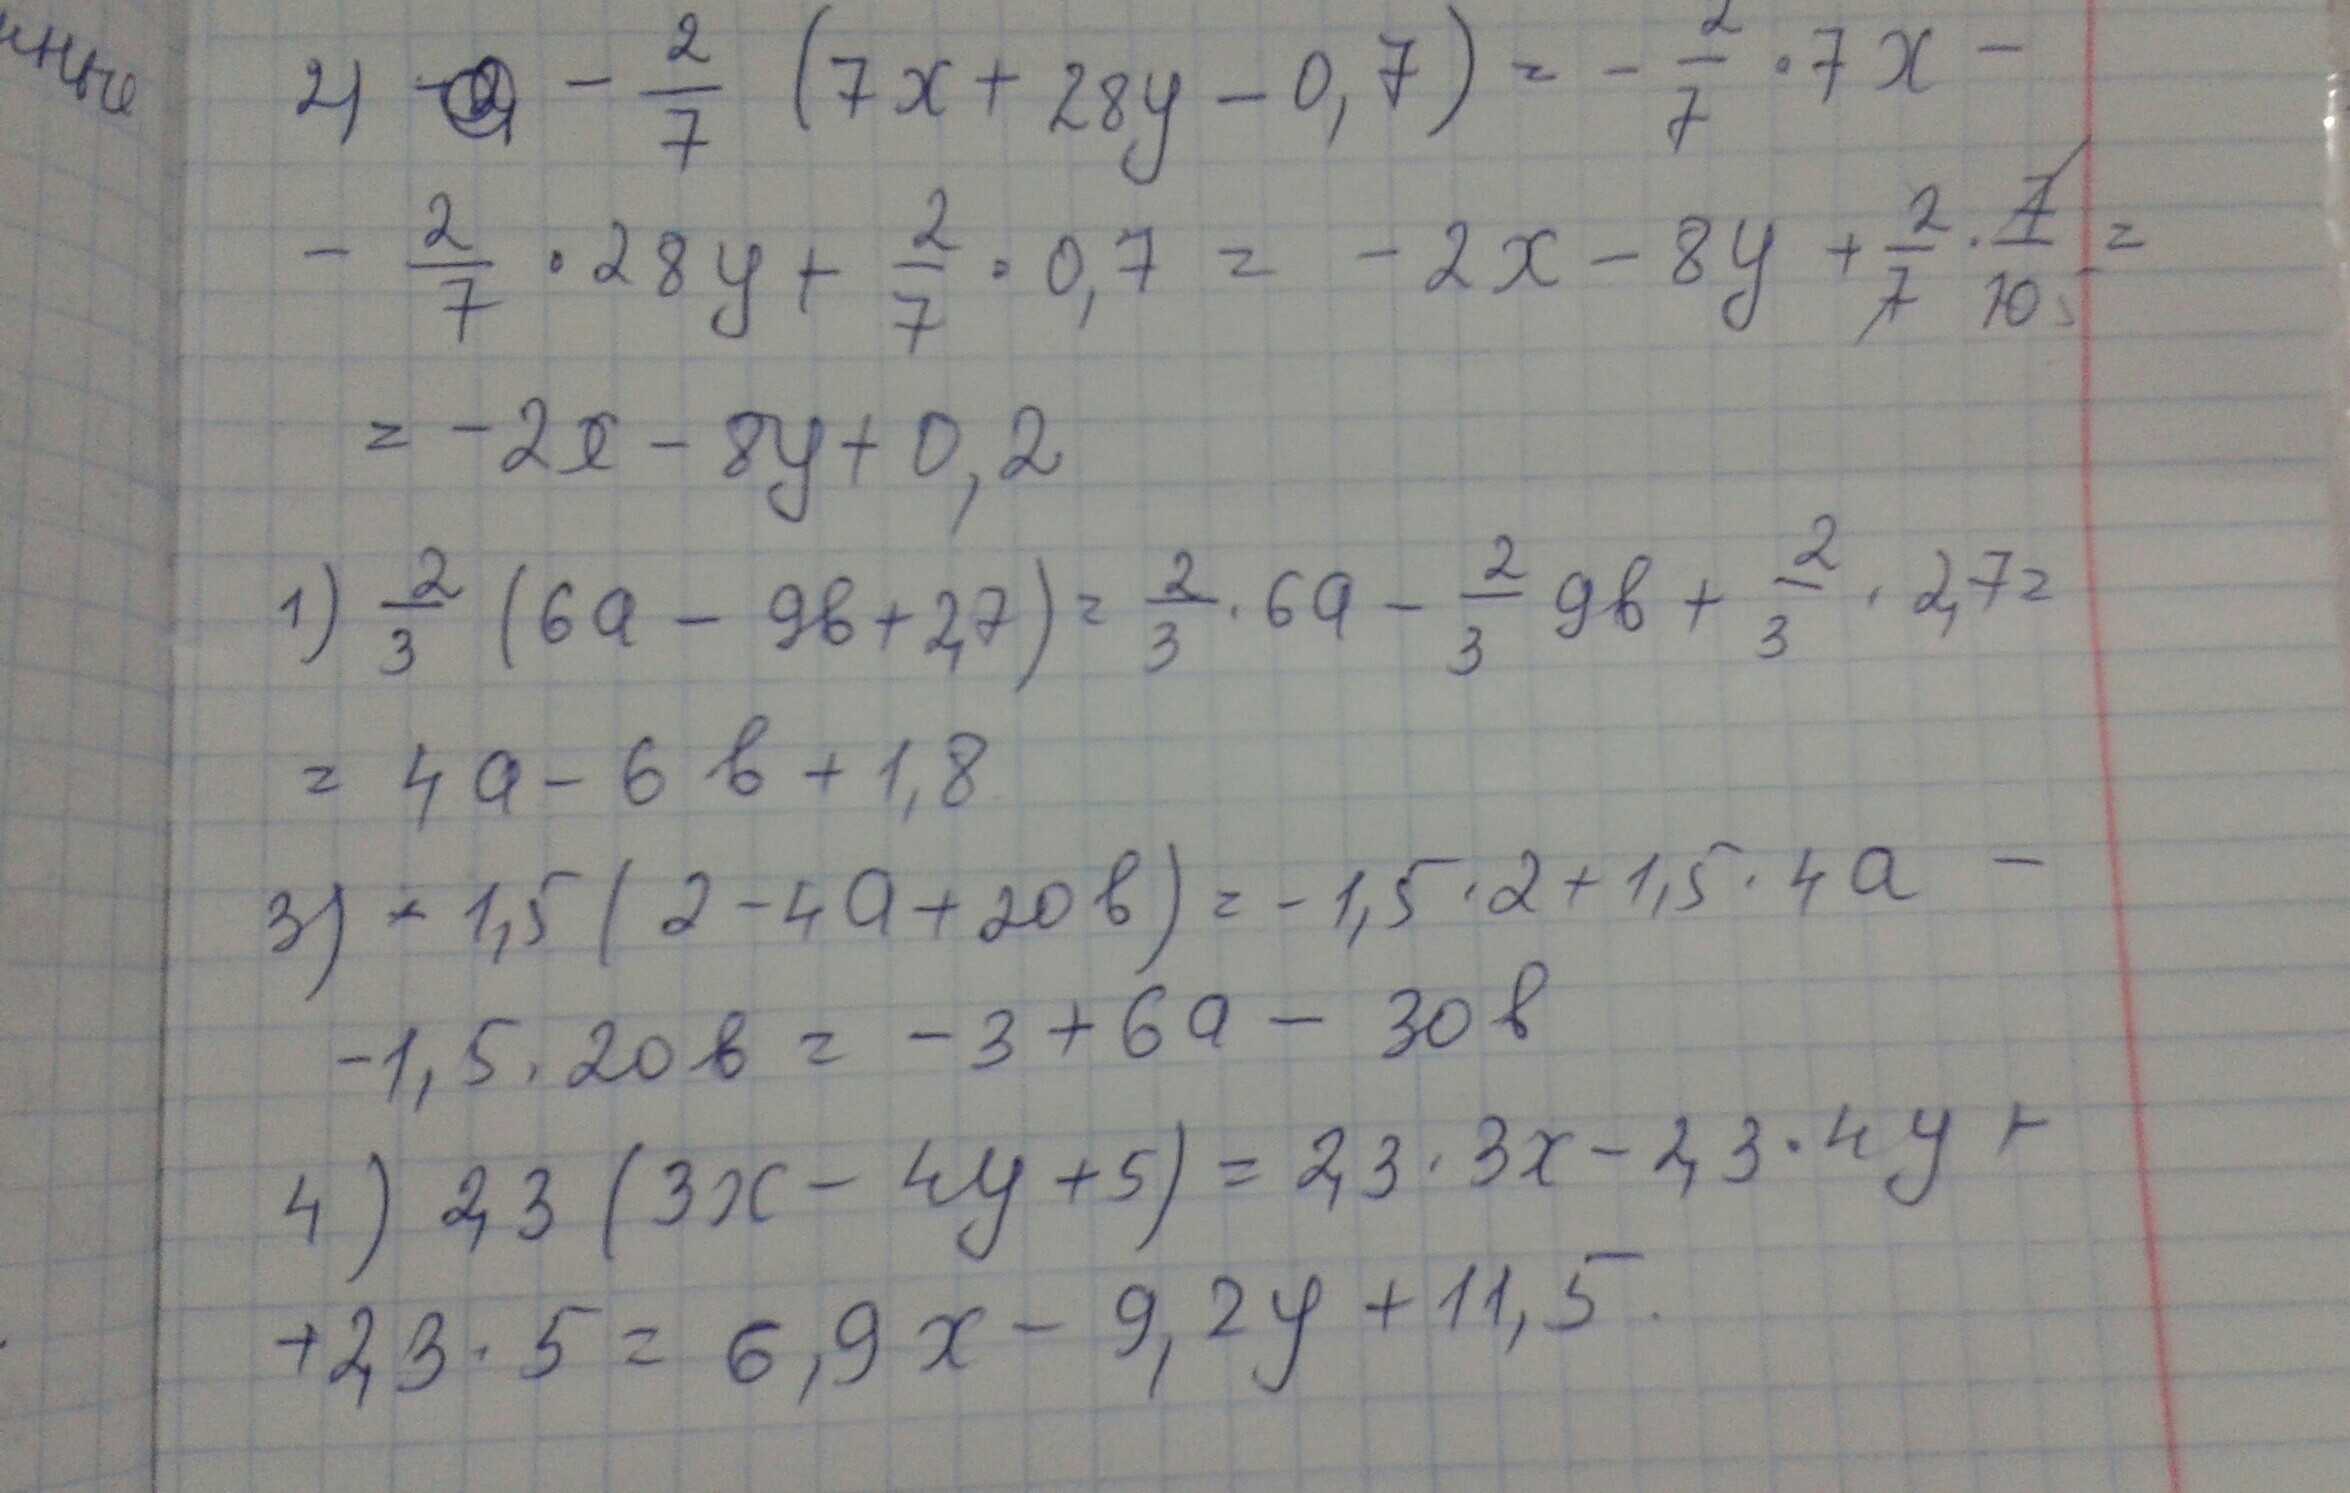 нные
2) - 2/7 (7x + 28y - 0,7) = - 2/7 · 7x -
- 2/7 · 28y + 2/7 · 0,7 = -2x - 8y + 2/7 · 7/10 =
= -2x - 8y + 0,2
1) 2/3 (6a - 9b + 2,7) = 2/3 · 6a - 2/3 9b + 2/3 · 2,7 =
= 4a - 6b + 1,8
3) - 1,5 (2 - 4a + 20b) = -1,5 · 2 + 1,5 · 4a -
-1,5 · 20b = -3 + 6a - 30b
4) 2,3 (3x - 4y + 5) = 2,3 · 3x - 2,3 · 4y +
+2,3 · 5 = 6,9x - 9,2y + 11,5.